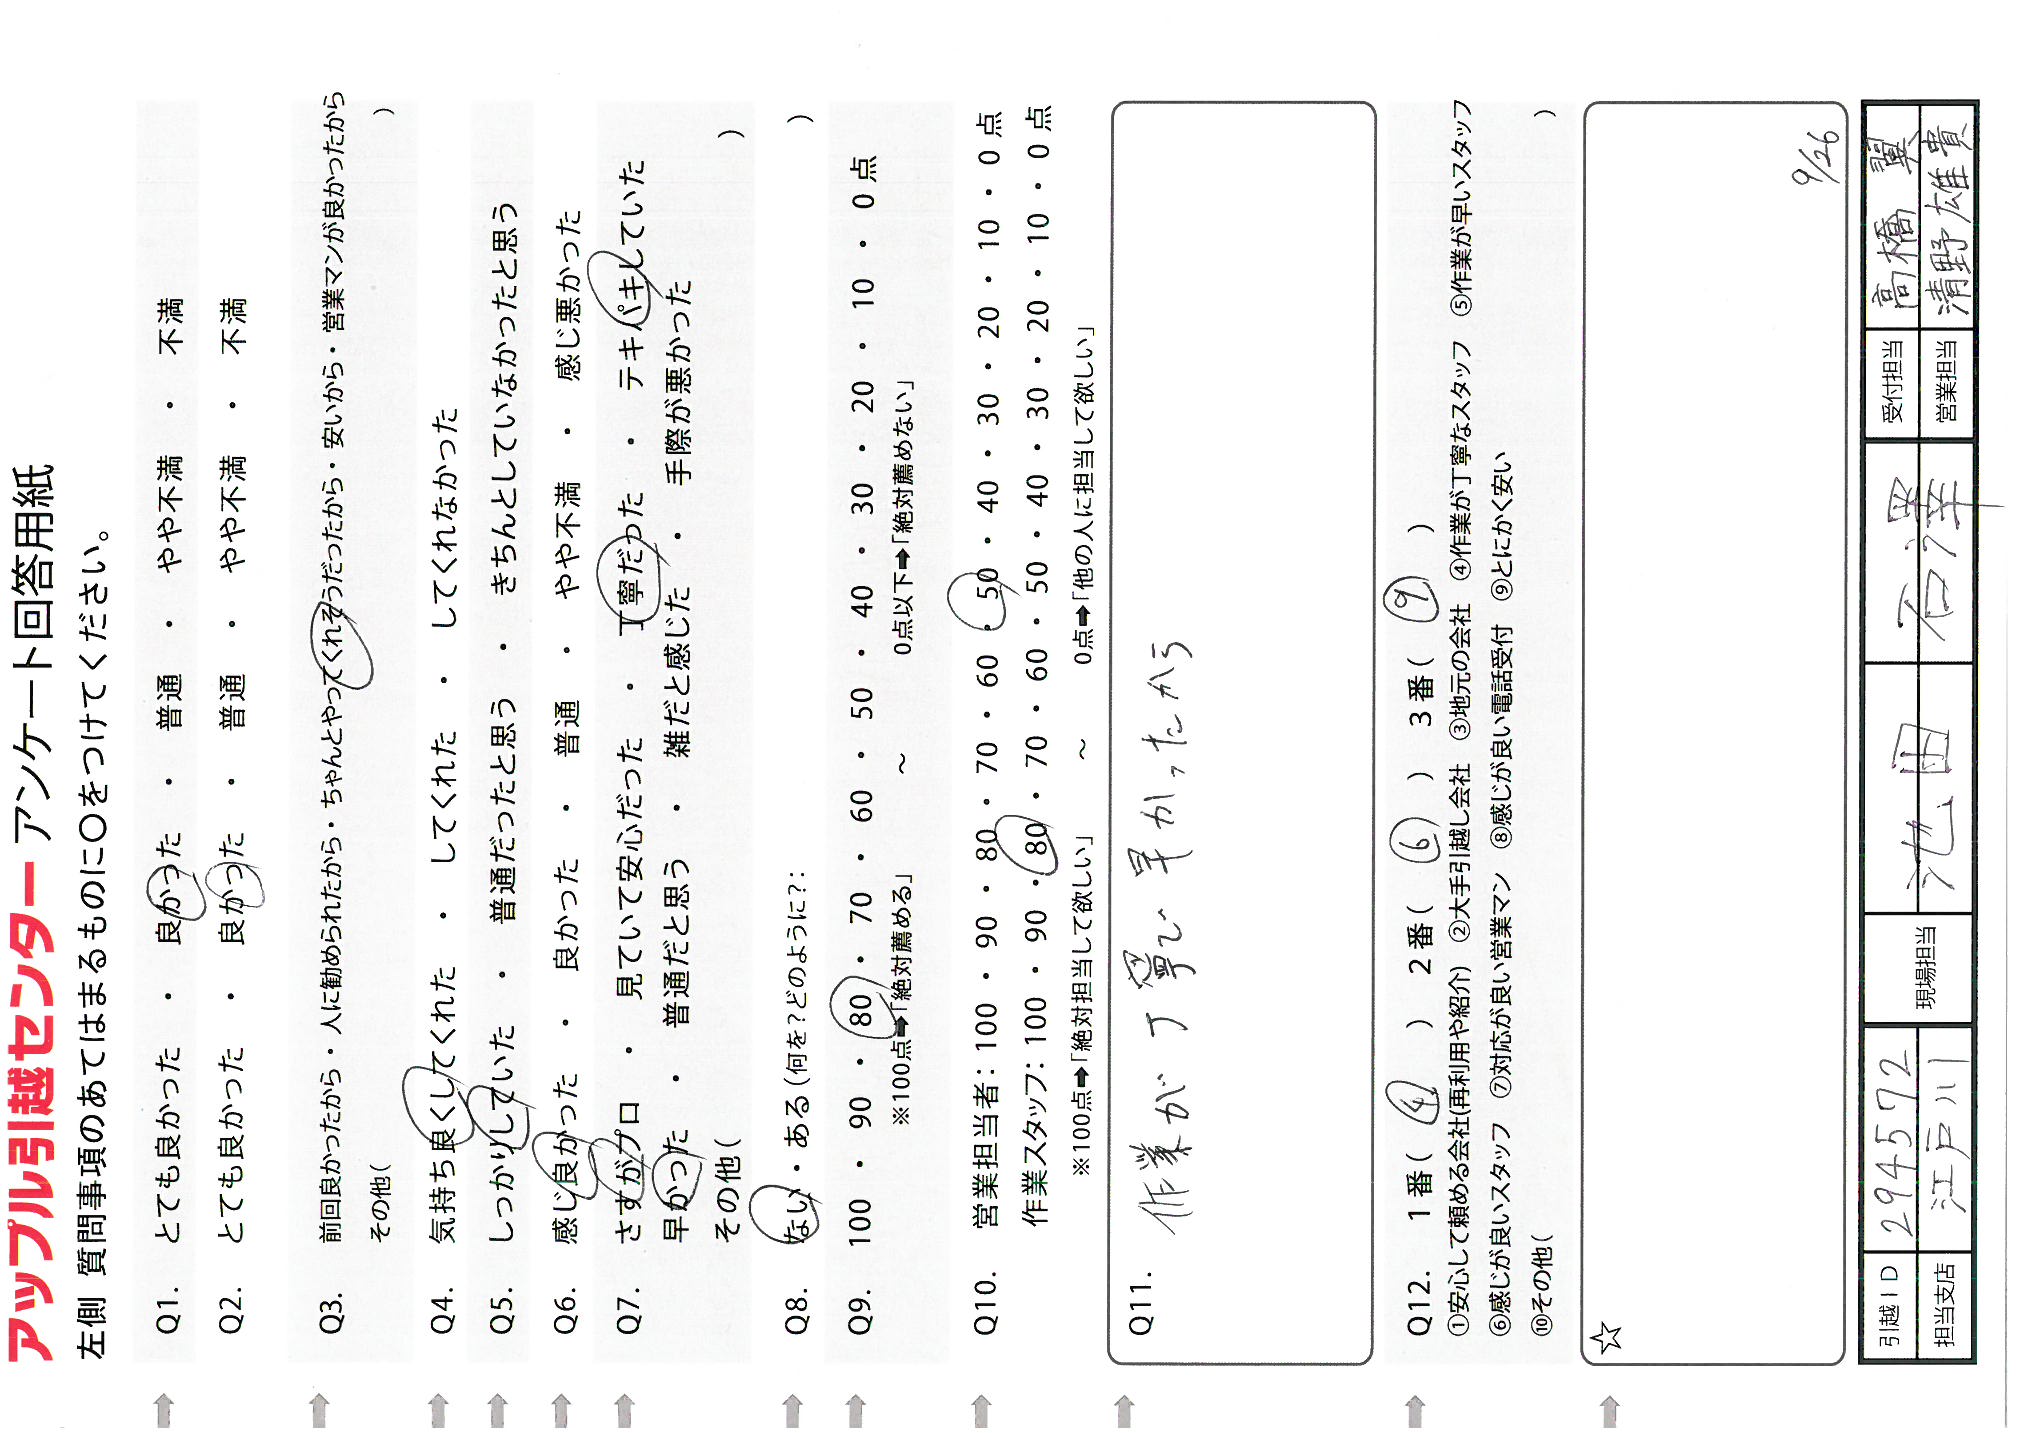 アップル引越センター アンケート回答用紙
左側 質問事項のあてはまるものに〇をつけてください。
Q1. とても良かった ・ 良かった ・ 普通 ・ やや不満 ・ 不満
Q2. とても良かった ・ 良かった ・ 普通 ・ やや不満 ・ 不満
Q3. 前回良かったから・人に勧められたから・ちゃんとやってくれそうだったから・安いから・営業マンが良かったから
その他( )
Q4. 気持ち良くしてくれた ・ してくれた ・ してくれなかった
Q5. しっかりしていた ・ 普通だったと思う ・ きちんとしていなかったと思う
Q6. 感じ良かった ・ 良かった ・ 普通 ・ やや不満 ・ 感じ悪かった
Q7. さすがプロ ・ 見ていて安心だった ・ 丁寧だった ・ テキパキしていた
早かった ・ 普通だと思う ・ 雑だと感じた ・ 手際が悪かった
その他( )
Q8. ない・ある(何を?どのように?: )
Q9. 100 ・ 90 ・ 80 ・ 70 ・ 60 ・ 50 ・ 40 ・ 30 ・ 20 ・ 10 ・ 0 点
※100点➡「絶対薦める」 ～ 0点以下➡「絶対薦めない」
Q10. 営業担当者: 100 ・ 90 ・ 80 ・ 70 ・ 60 ・ 50 ・ 40 ・ 30 ・ 20 ・ 10 ・ 0 点
作業スタッフ: 100 ・ 90 ・ 80 ・ 70 ・ 60 ・ 50 ・ 40 ・ 30 ・ 20 ・ 10 ・ 0 点
※100点➡「絶対担当して欲しい」 ～ 0点➡「他の人に担当して欲しい」
Q11.
作業が丁寧で早かったから
Q12. 1番( ④ ) 2番( ⑥ ) 3番( ⑨ )
①安心して頼める会社(再利用や紹介) ②大手引越し会社 ③地元の会社 ④作業が丁寧なスタッフ ⑤作業が早いスタッフ
⑥感じが良いスタッフ ⑦対応が良い営業マン ⑧感じが良い電話受付 ⑨とにかく安い
⑩その他( )
☆
9/26
引越ID 294572 現場担当 池田 石澤 受付担当 高橋 翼
担当支店 江戸川 営業担当 清野雄貴